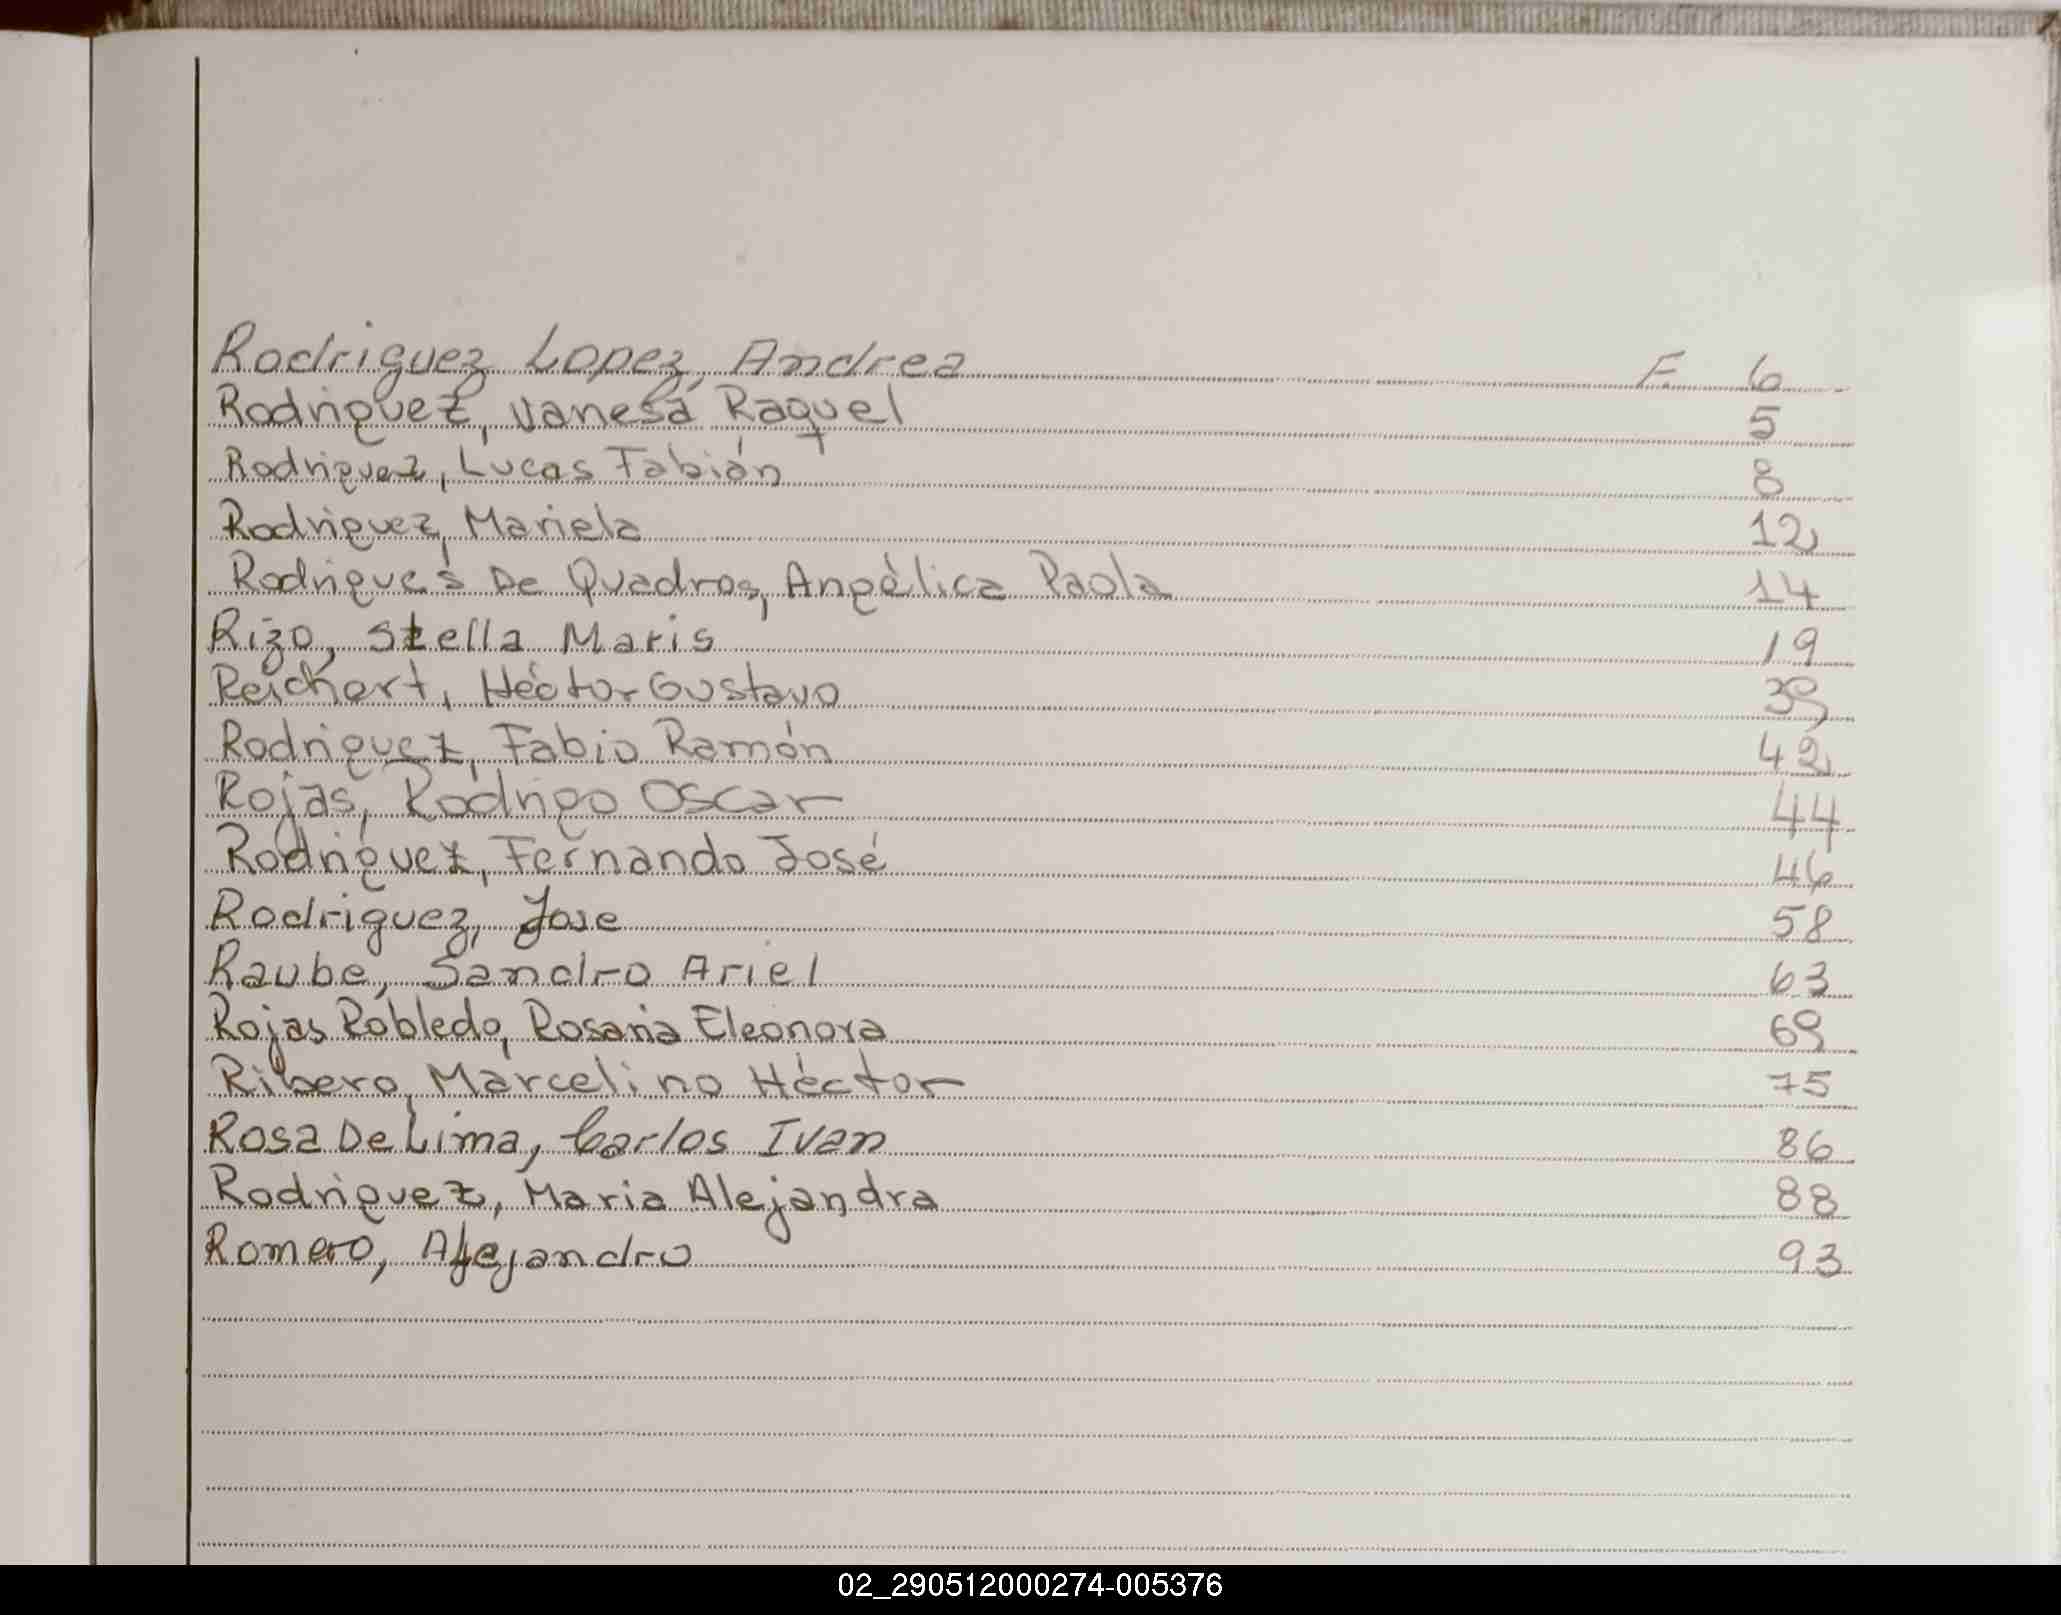 Rodriguez Lopez, Andrea F. 6
Rodriguez, Vanesa Raquel 5
Rodriguez, Lucas Fabián 8
Rodriguez, Mariela 12
Rodrigues De Quadros, Angélica Paola 14
Rizo, Stella Maris 19
Reichert, Héctor Gustavo 39
Rodriguez, Fabio Ramón 42
Rojas, Rodrigo Oscar 44
Rodriguez, Fernando José 46
Rodriguez, Jose 58
Raube, Sandro Ariel 63
Rojas Robledo, Rosaria Eleonora 69
Ribero, Marcelino Héctor 75
Rosa De Lima, Carlos Ivan 86
Rodriguez, Maria Alejandra 88
Romero, Alejandro 93
02_290512000274-005376